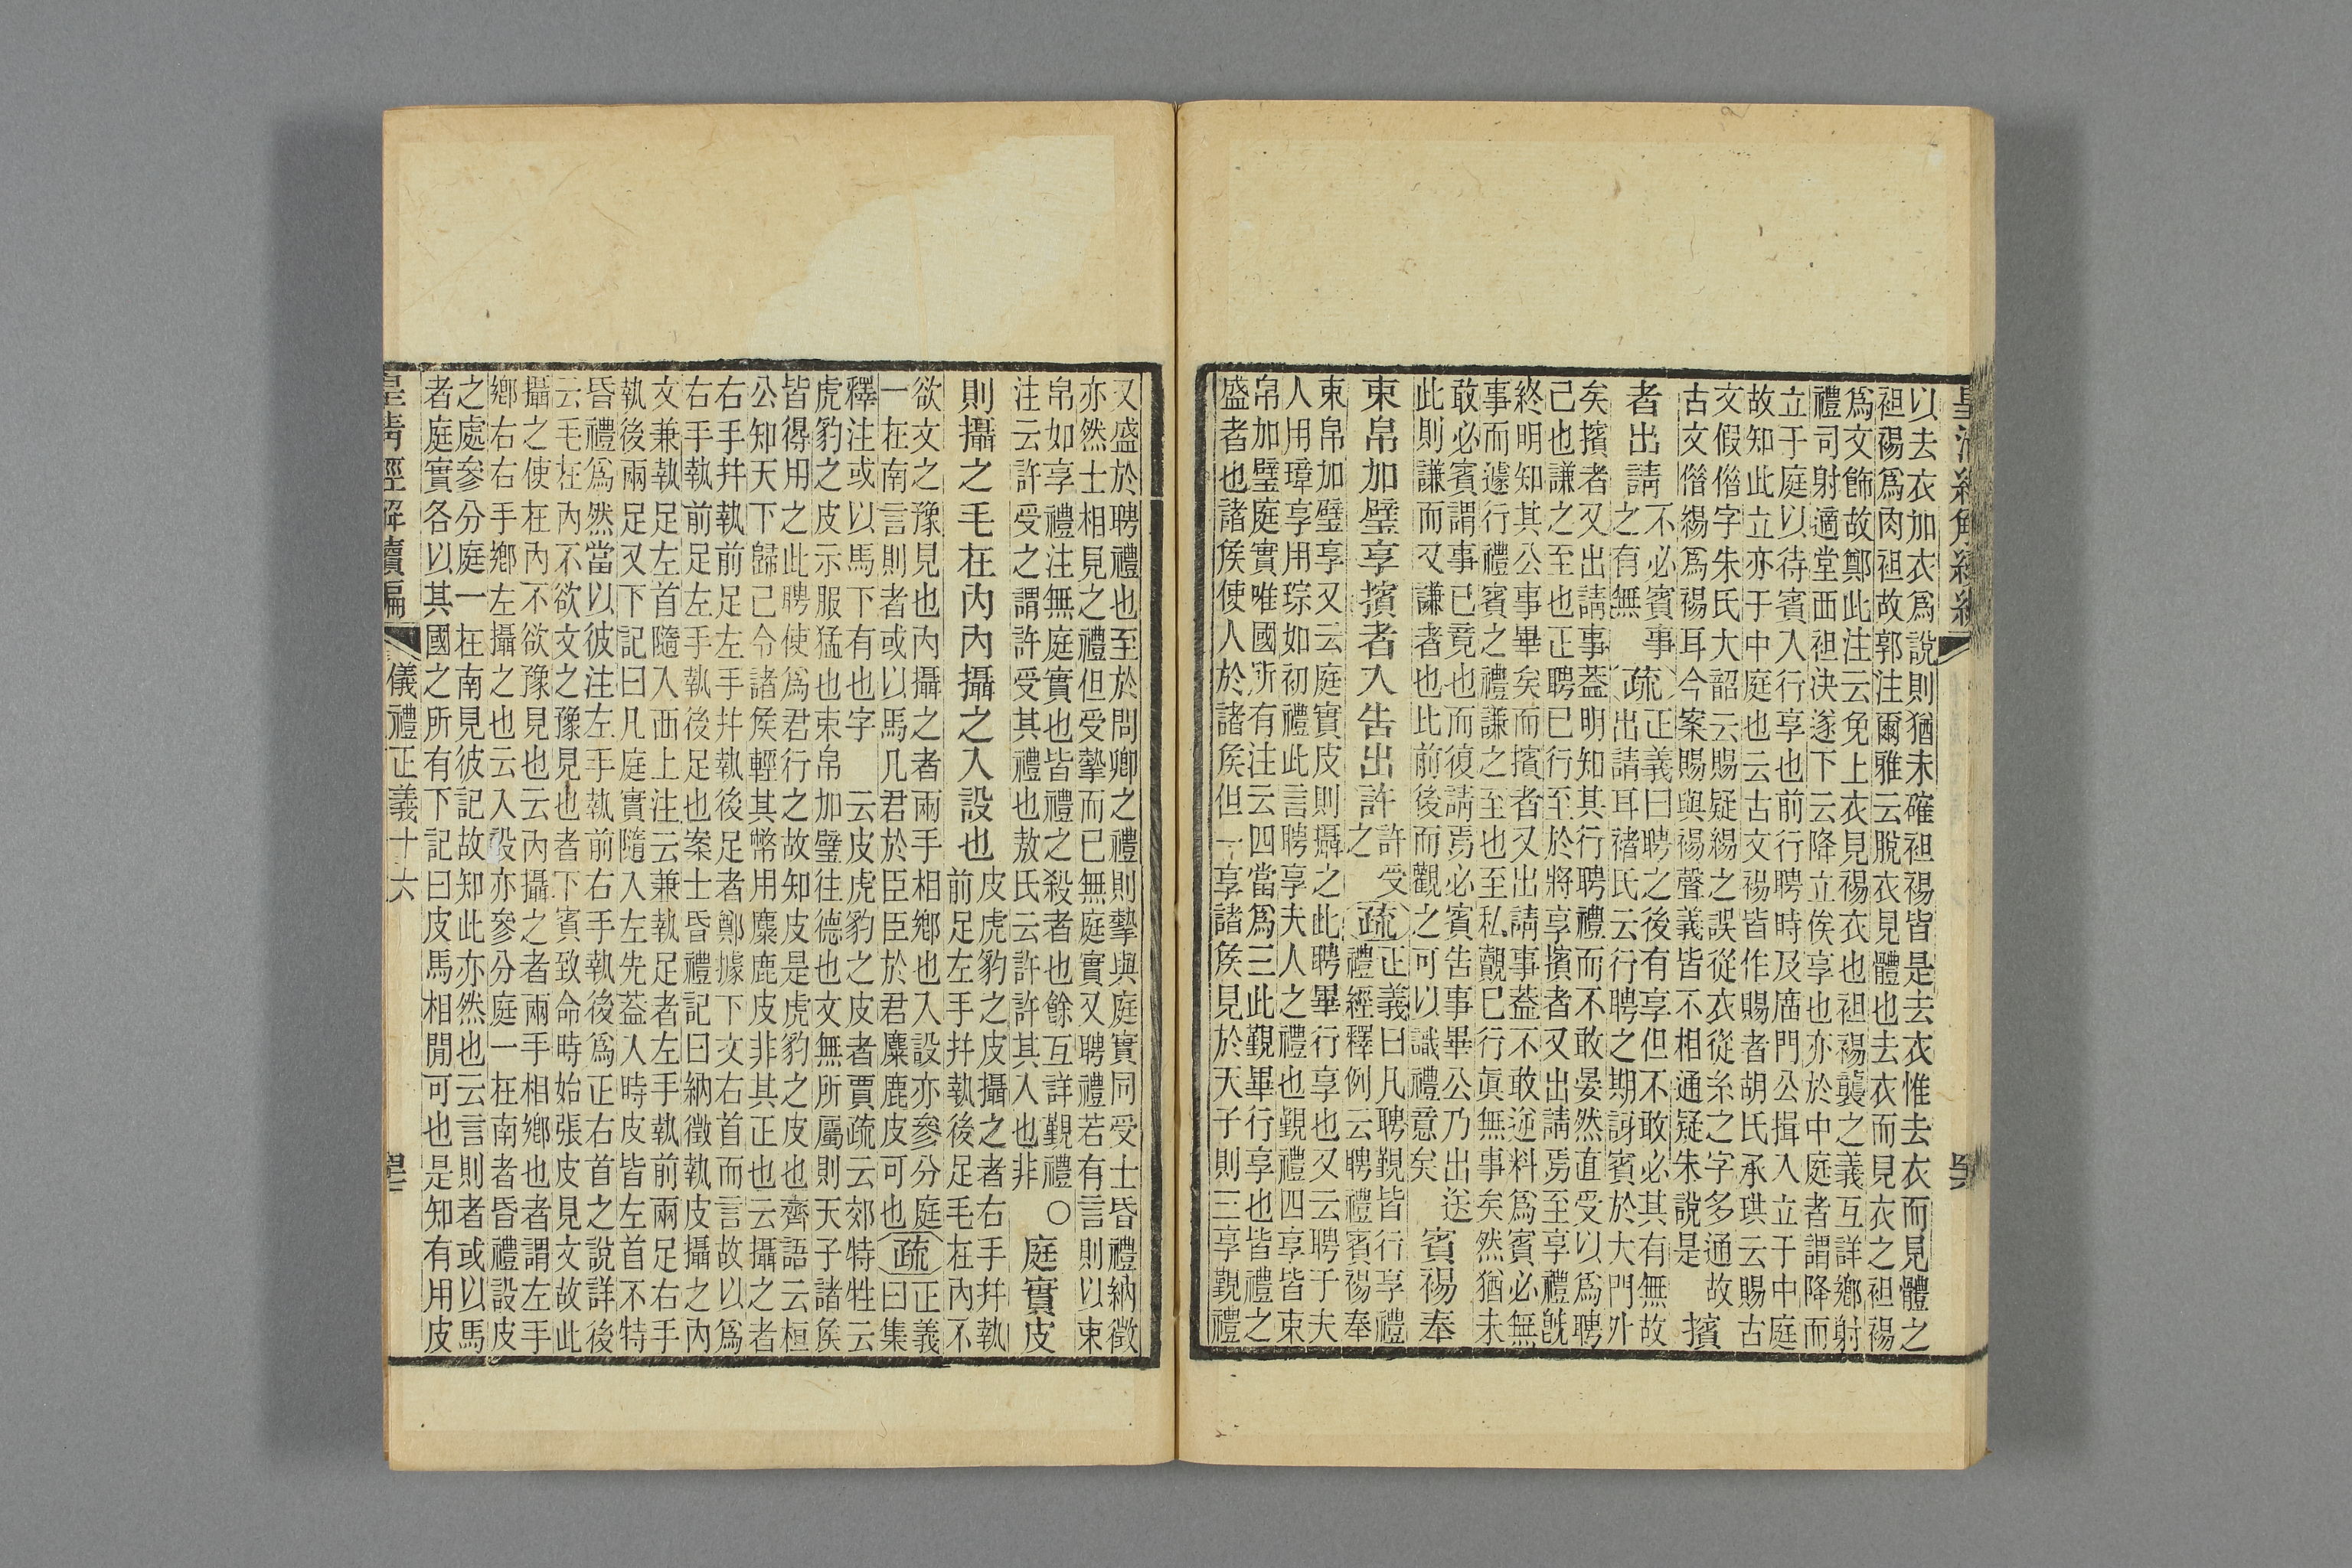 以去衣加衣爲說則猶未確袒裼皆是去衣惟去衣而見體之
袒裼爲肉袒故郭注爾雅云脫衣見體也去衣而見衣之袒裼
爲文飾故鄭此注云免上衣見裼衣也袒裼襲之義互詳鄉射
禮司射適堂西袒決遂下云降立俟享也亦於中庭者謂降而
立于庭以待賓入行享也前行聘時及廟門公揖入立于中庭
故知此立亦于中庭也云古文裼皆作賜者胡氏承珙云賜古
文假僣字朱氏大韶云賜疑緆之誤從衣從糸之字多通故
古文僣緆爲裼耳今案賜與裼聲義皆不相通疑朱說是
擯
者出請
不必賓事
之有無
疏
正義曰聘之後有享但不敢必其有無故
出請耳褚氏云行聘之期訝賓於大門外
矣擯者又出請事蓋明知其行聘禮而不敢晏然直受以爲聘
己也謙之至也正聘已行至於將享擯者又出請焉至享禮旣
終明知其公事畢矣而擯者又出請事蓋不敢逆料爲賓必無
事而遽行禮賓之禮謙之至也至私覿已行眞無事矣然猶未
敢必賓謂事已竟也而復請焉必賓告事畢公乃出送
此則謙而又謙者也此前後而觀之可以識禮意矣
賓裼奉
束帛加璧享擯者入告出許
許受
之
疏
正義曰凡聘覲皆行享禮
禮經釋例云聘禮賓裼奉
束帛加璧享又云庭實皮則攝之此聘畢行享也又云聘于夫
人用璋享用琮如初禮此言聘享夫人之禮也覲禮四享皆束
帛加璧庭實唯國所有注云四當爲三此覲畢行享也皆禮之
盛者也諸侯使人於諸侯但一享諸侯見於天子則三享覲禮
又盛於聘禮也至於問卿之禮則摯與庭實同受士昏禮納徵
亦然士相見之禮但受摯而已無庭實又聘禮若有言則以束
帛如享禮注無庭實也皆禮之殺者也餘互詳覲禮○
注云許受之謂許受其禮也敖氏云許許其入也非
庭實皮
則攝之毛在內內攝之入設也
皮虎豹之皮攝之者右手幷執
前足左手幷執後足毛在內不
欲文之豫見也內攝之者兩手相鄉也入設亦參分庭
一在南言則者或以馬凡君於臣臣於君麋鹿皮可也
疏
正義
曰集
釋注或以馬下有也字
云皮虎豹之皮者賈疏云郊特牲云
虎豹之皮示服猛也束帛加璧往德也文無所屬則天子諸侯
皆得用之此聘使爲君行之故知皮是虎豹之皮也齊語云桓
公知天下歸己令諸侯輕其幣用麋鹿皮非其正也云攝之者
右手幷執前足左手幷執後足者鄭據下文右首而言故以爲
右手執前足左手執後足也案士昏禮記曰納徵執皮攝之內
文兼執足左首隨入西上注云兼執足者左手執前兩足右手
執後兩足又下記曰凡庭實隨入左先蓋入時皮皆左首不特
昏禮爲然當以彼注左手執前右手執後爲正右首之說詳後
云毛在內不欲文之豫見也者下賓致命時始張皮見文故此
攝之使在內不欲豫見也云內攝之者兩手相鄉也者謂左手
鄉右右手鄉左攝之也云入設亦參分庭一在南者昏禮設皮
之處參分庭一在南見彼記故知此亦然也云言則者或以馬
者庭實各以其國之所有下記曰皮馬相閒可也是知有用皮
皇清經解續編
儀禮正義十六